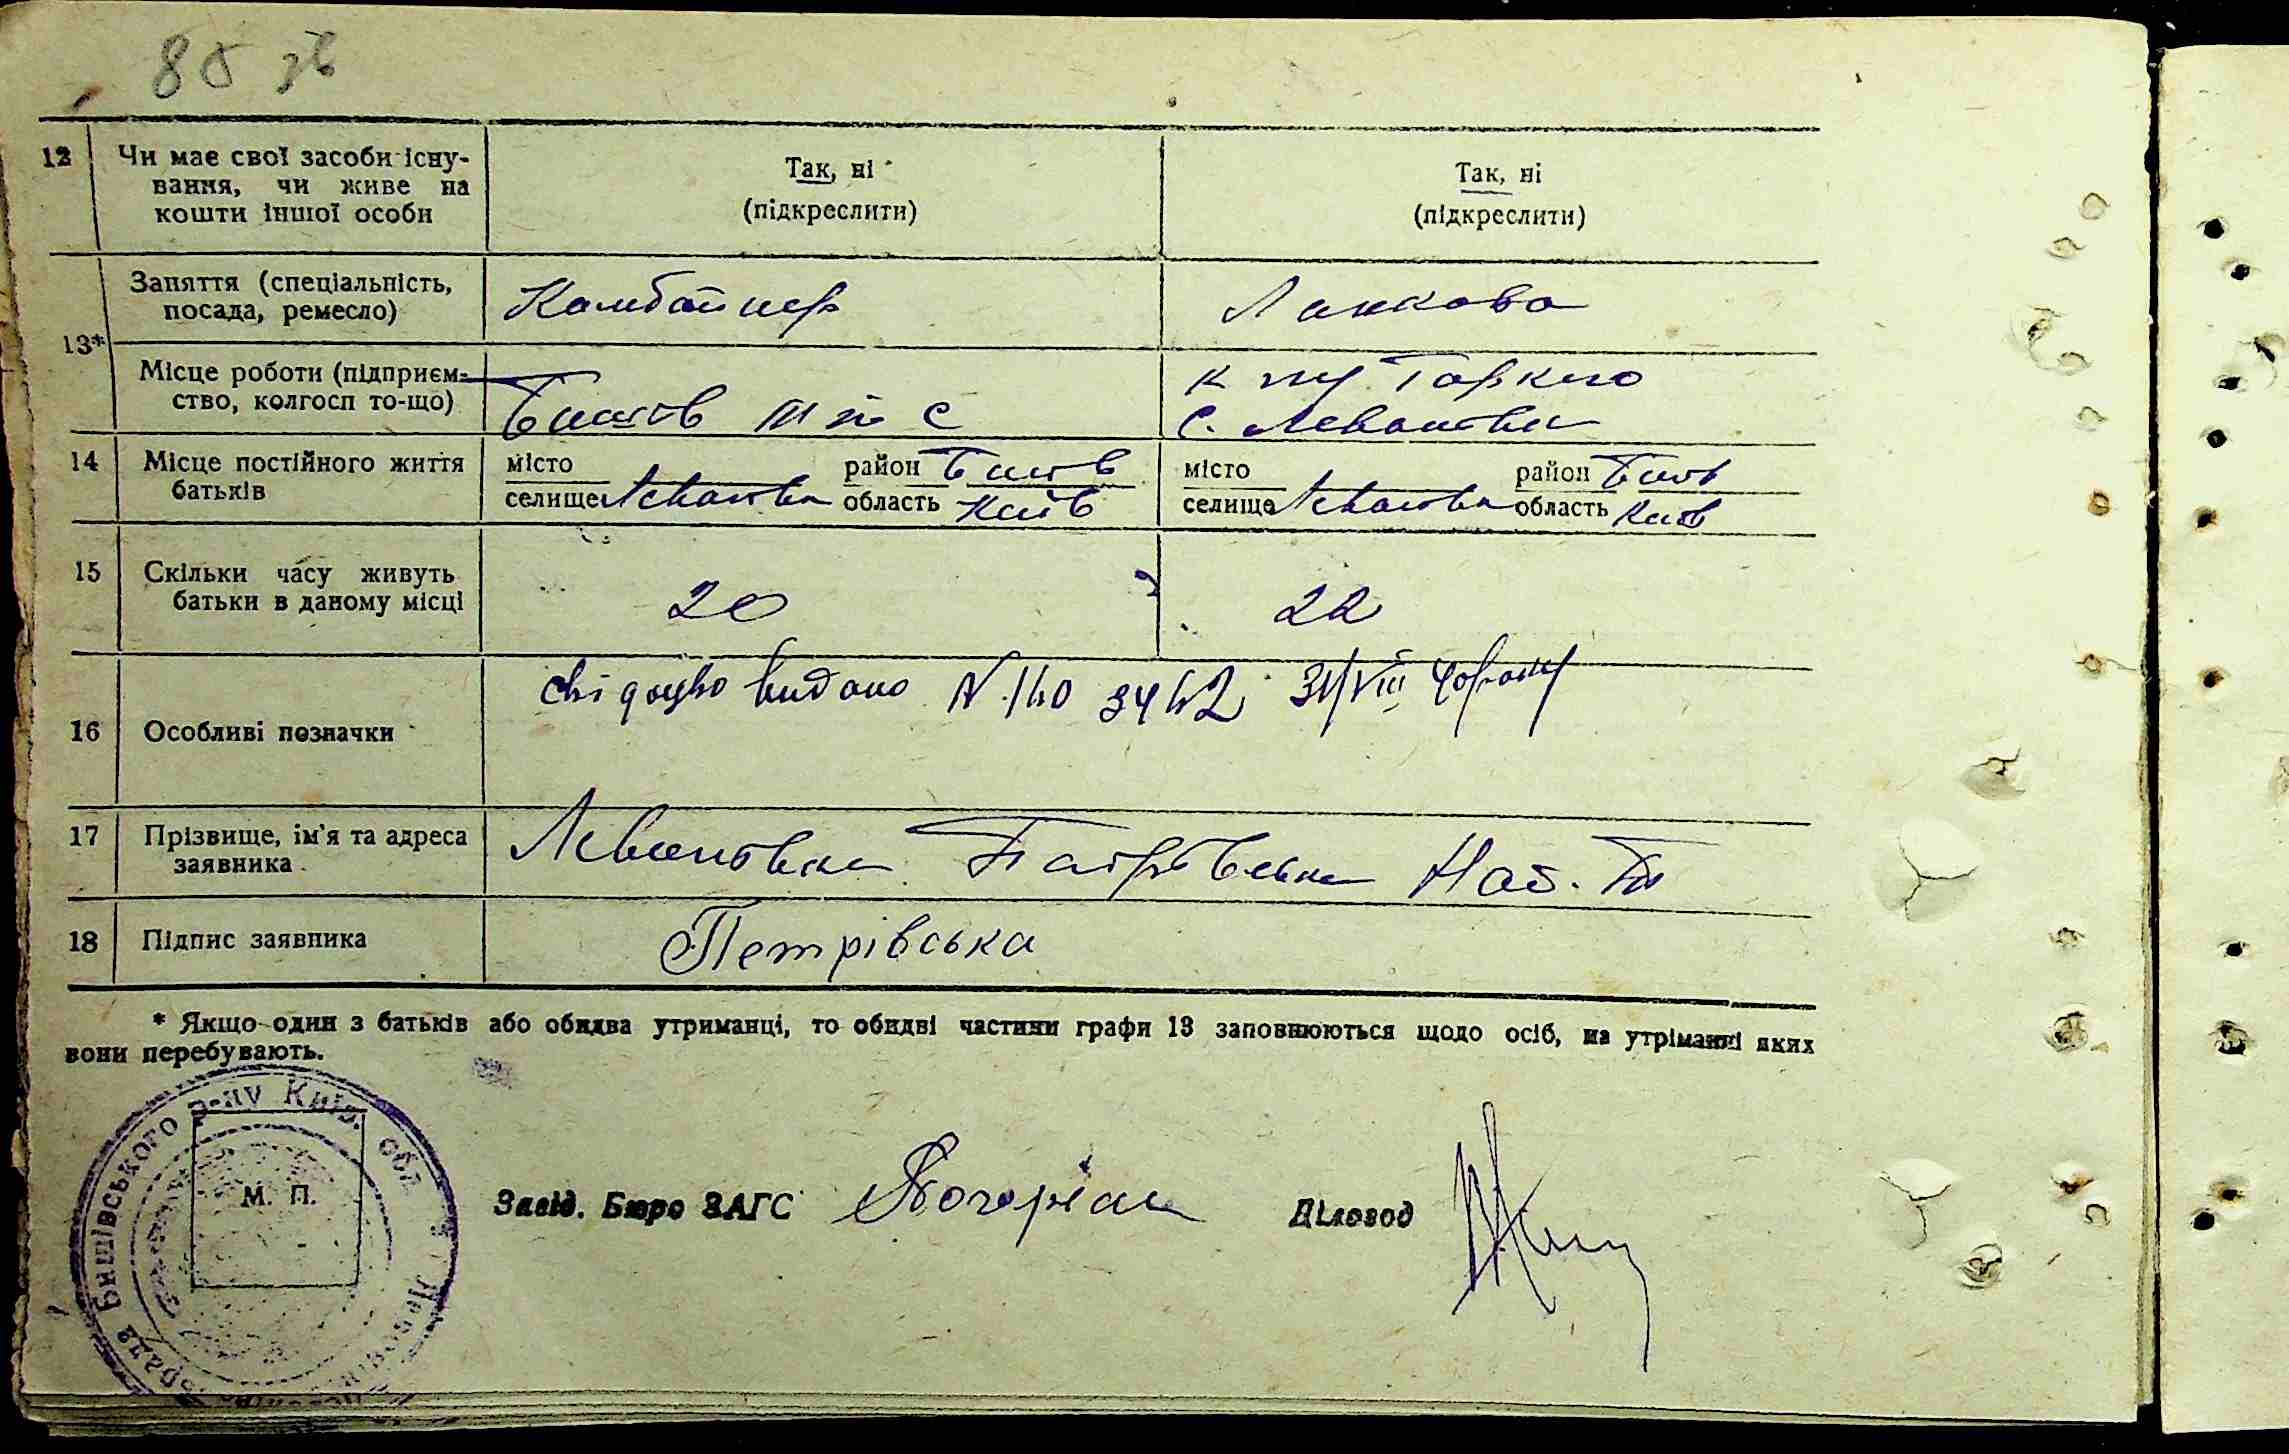 85 зв
12 Чи має свої засоби існу-
вання, чи живе на
кошти іншої особи
Так, ні
(підкреслити)
Так, ні
(підкреслити)
13* Заняття (спеціальність,
посада, ремесло)
Комбайнер
Ланкова
Місце роботи (підприєм-
ство, колгосп то-що)
Бишів М т С
К гу Горкого
с. Леванівка
14 Місце постійного життя
батьків
місто район Бишів
селище Леванівка область Київ
місто район Бишів
селище Леванівка область Київ
15 Скільки часу живуть
батьки в даному місці
20
22
16 Особливі позначки
свідоцтво видано N 31/VIII
17 Прізвище, ім'я та адреса
заявника
Леванівка Петрівська
18 Підпис заявника
Петрівська
* Якщо один з батьків або обидва утриманці, то обидві частини графи 13 заповнюються щодо осіб, на утріманні яких
вони перебувають.
Бишівського р-ну Київ. обл.
М. П.
Завід. Бюро ЗАГС
Діловод